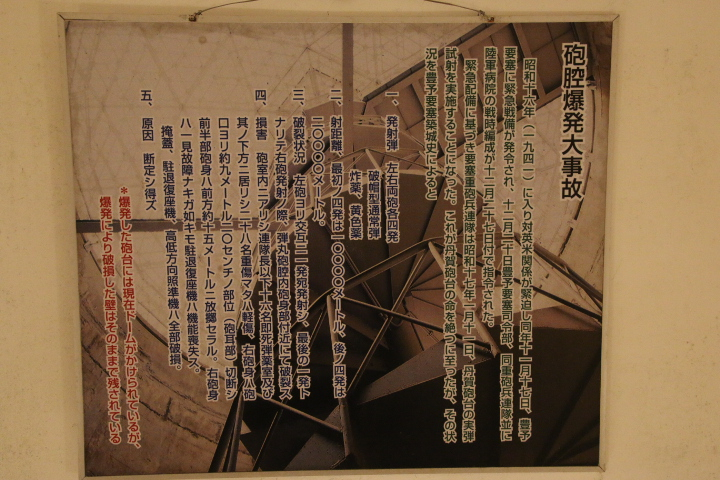 砲腔爆発大事故
昭和十六年（一九四一）に入り対英米関係が緊迫し同年十一月十七日、豊予
要塞に緊急戦備が発令され、十二月二十日豊予要塞司令部、同重砲兵連隊並に
陸軍病院の戦時編成が十二月二十七日付で指令された。
緊急配備に基づき要塞重砲兵連隊は昭和十七年一月十一日、丹賀砲台の実弾
試射を実施することになった。これが丹賀砲台の命を絶つに至ったが、その状
況を豊予要塞築城史によると
一、発射弾　左右両砲各四発
破帽型通常弾
炸薬、黄色薬
二、射距離　最初ノ四発は一〇〇〇〇メートル、後ノ四発は
二〇〇〇〇メートル。
三、破裂状況　左砲ヨリ交互ニ一発宛発射シ、最後の一発ト
ナリテ右砲発射ノ際、弾丸砲腔内砲身部付近にて破裂ス
四、損害　砲室内ニアリシ連隊長以下十六名即死弾薬室及び
其ノ下方ニ居リシ二十八名重傷マタハ軽傷、右砲身ハ砲
口ヨリ約九メートル二〇センチノ部位（砲耳部）切断シ
前半部砲身ハ前方約十五メートルニ放擲セラル。右砲身
ハ一見故障ナキガ如キモ駐退復座機ハ機能喪失ス。
掩蓋、駐退復座機、高低方向照準機ハ全部破損。
五、原因　断定シ得ズ
＊爆発した砲台には現在ドームがかけられているが、
爆発により破損した壁はそのままで残されている